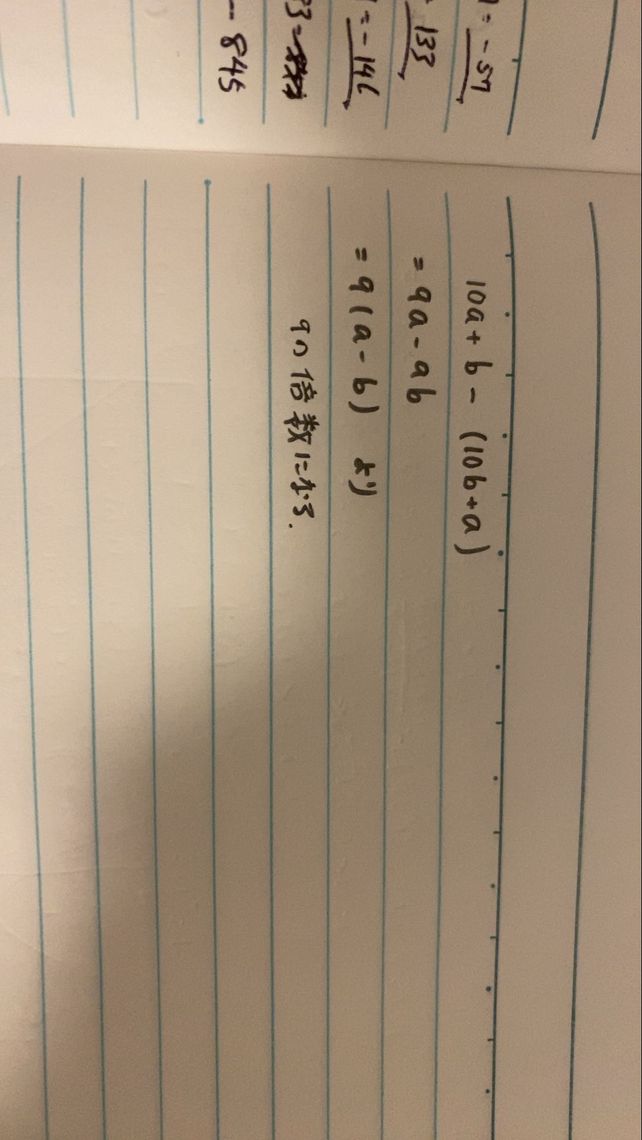 = -57
133
= -146
-845
10a+b-(10b+a)
=9a-9b
=9(a-b) より
9の倍数になる.